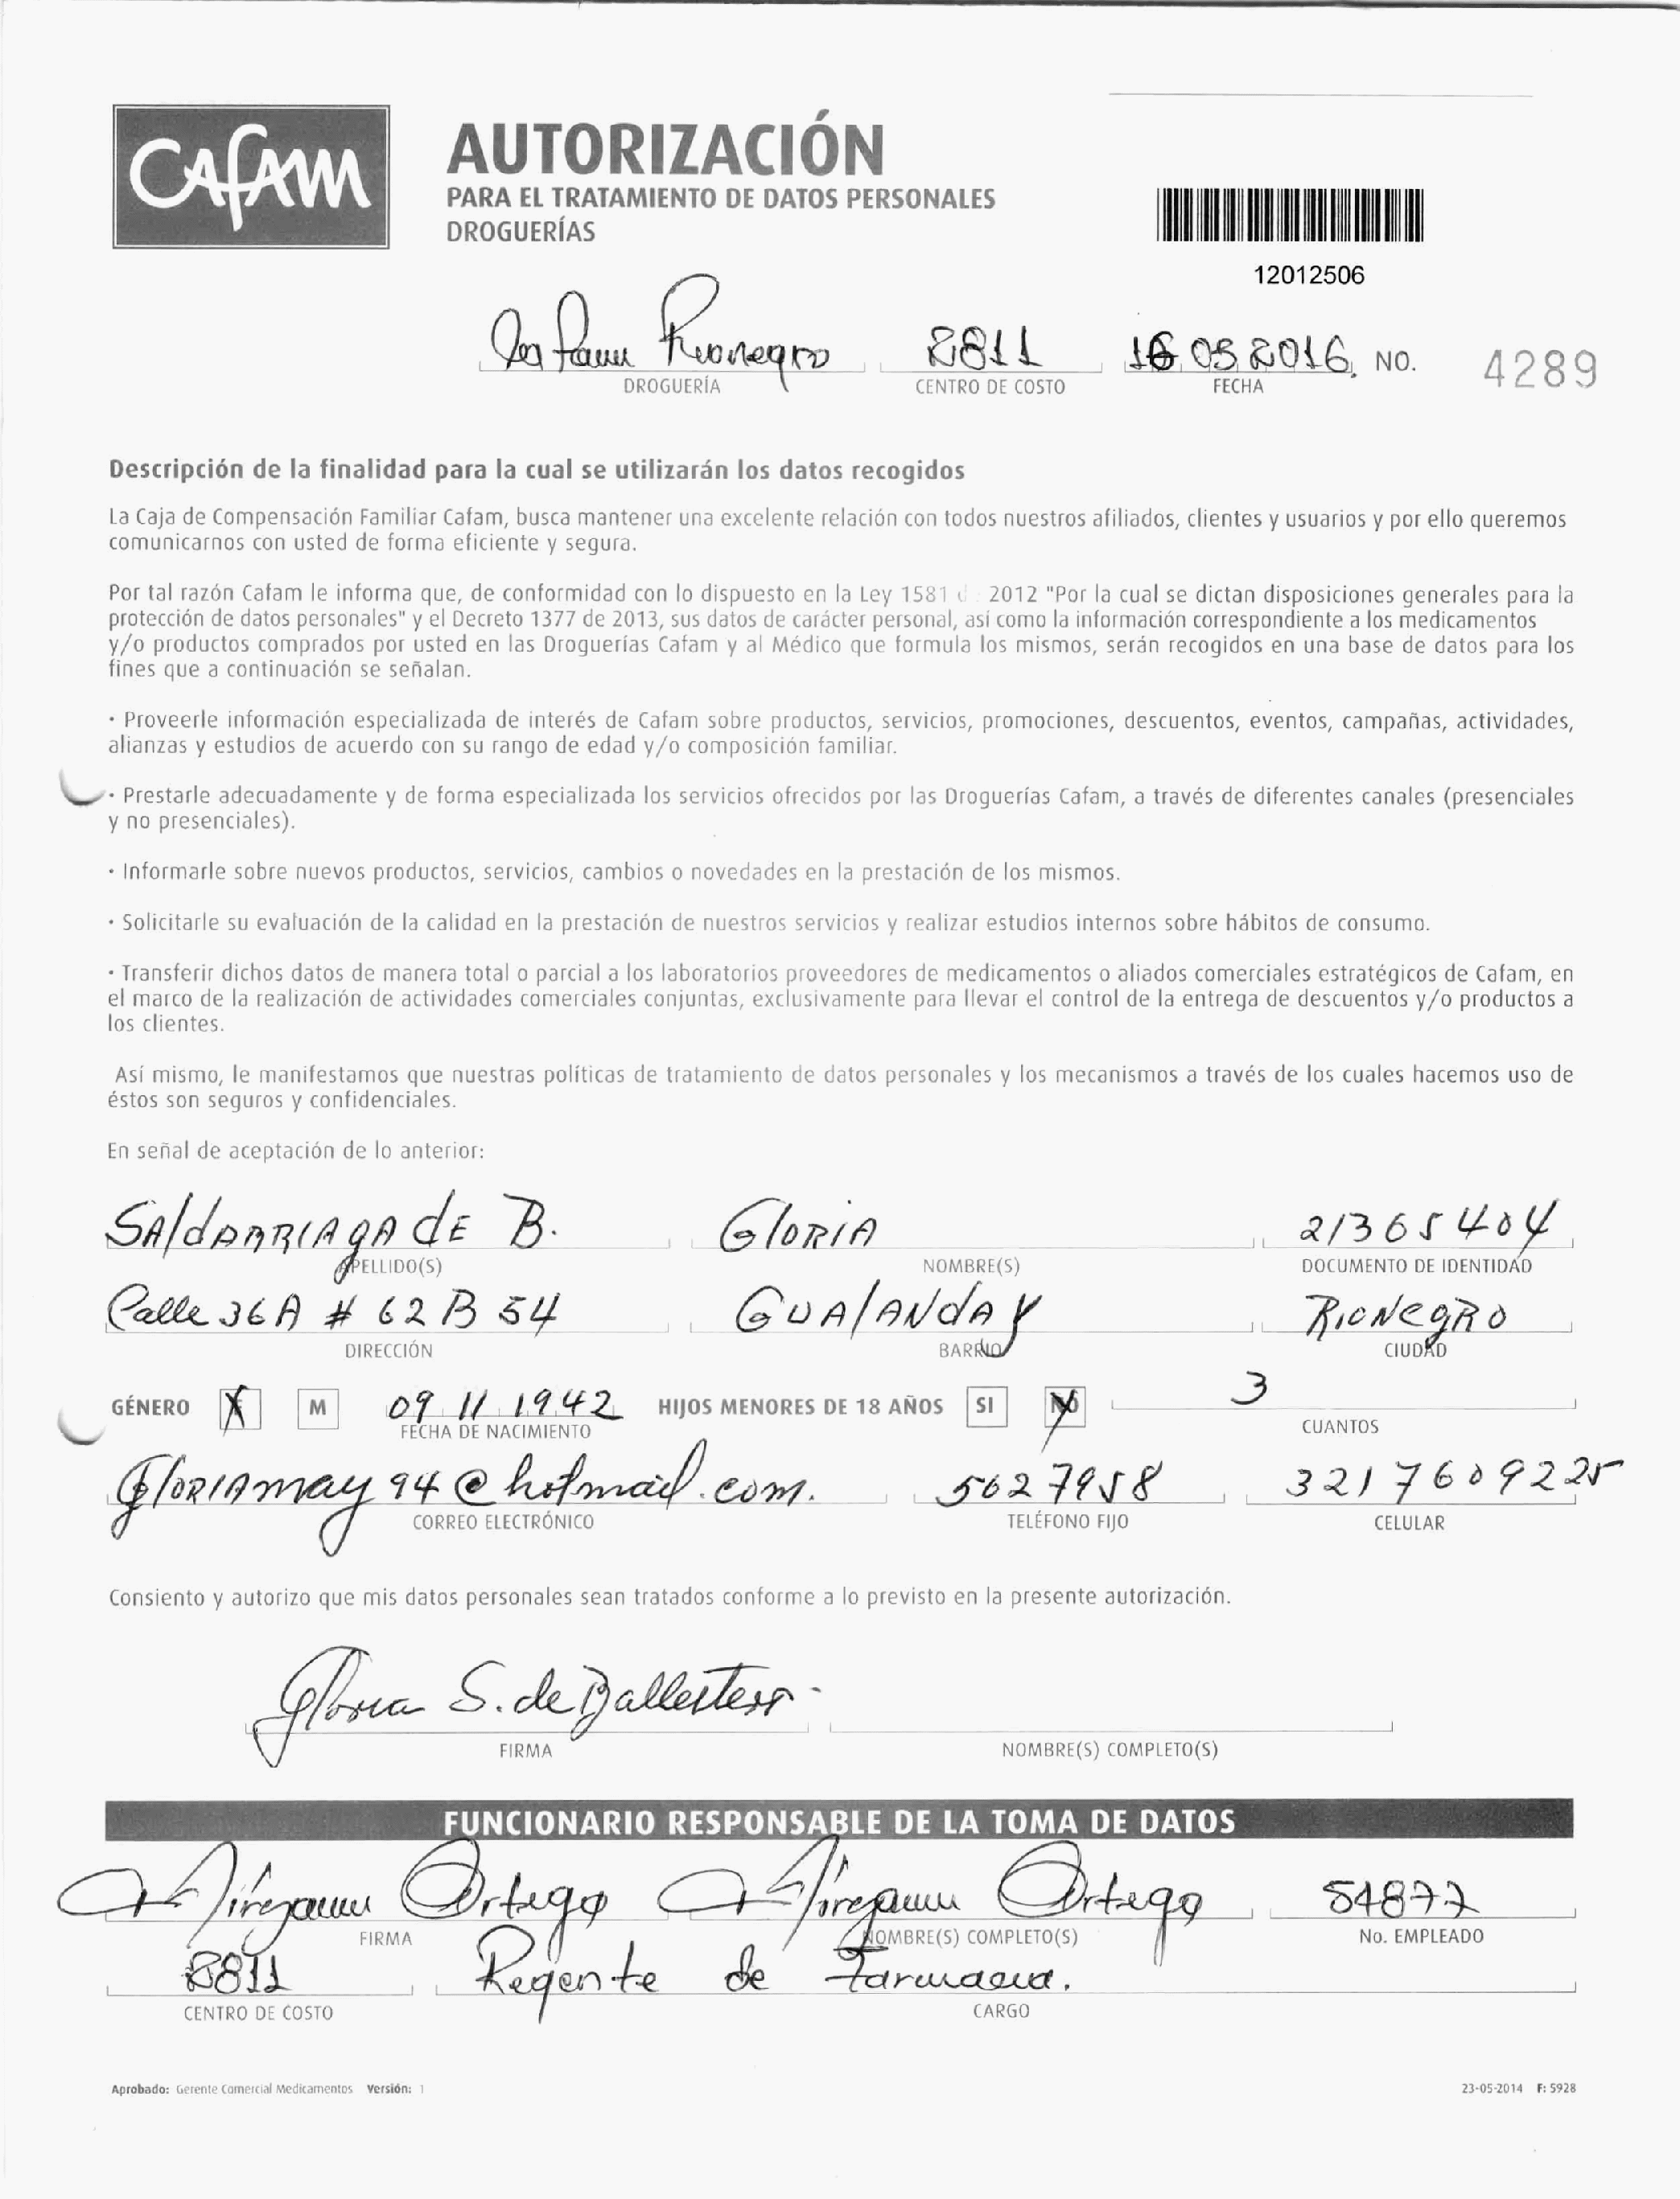 Cafam
AUTORIZACIÓN
PARA EL TRATAMIENTO DE DATOS PERSONALES
DROGUERÍAS
12012506
Cafam Rionegro 8811 16 05 2016 NO. 4289
DROGUERÍA CENTRO DE COSTO FECHA
Descripción de la finalidad para la cual se utilizarán los datos recogidos
La Caja de Compensación Familiar Cafam, busca mantener una excelente relación con todos nuestros afiliados, clientes y usuarios y por ello queremos
comunicarnos con usted de forma eficiente y segura.
Por tal razón Cafam le informa que, de conformidad con lo dispuesto en la Ley 1581 d 2012 "Por la cual se dictan disposiciones generales para la
protección de datos personales" y el Decreto 1377 de 2013, sus datos de carácter personal, asi como la información correspondiente a los medicamentos
y/o productos comprados por usted en las Droguerías Cafam y al Médico que formula los mismos, serán recogidos en una base de datos para los
fines que a continuación se señalan.
· Proveerle información especializada de interés de Cafam sobre productos, servicios, promociones, descuentos, eventos, campañas, actividades,
alianzas y estudios de acuerdo con su rango de edad y/o composición familiar.
· Prestarle adecuadamente y de forma especializada los servicios ofrecidos por las Droguerías Cafam, a través de diferentes canales (presenciales
y no presenciales).
· Informarle sobre nuevos productos, servicios, cambios o novedades en la prestación de los mismos.
· Solicitarle su evaluación de la calidad en la prestación de nuestros servicios y realizar estudios internos sobre hábitos de consumo.
· Transferir dichos datos de manera total o parcial a los laboratorios proveedores de medicamentos o aliados comerciales estratégicos de Cafam, en
el marco de la realización de actividades comerciales conjuntas, exclusivamente para llevar el control de la entrega de descuentos y/o productos a
los clientes.
Así mismo, le manifestamos que nuestras políticas de tratamiento de datos personales y los mecanismos a través de los cuales hacemos uso de
éstos son seguros y confidenciales.
En señal de aceptación de lo anterior:
SAldARRIAgA dE B. GlORIA 21365404
APELLIDO(S) NOMBRE(S) DOCUMENTO DE IDENTIDAD
Calle 36A # 62 B 54 GUAlANdAY RIONegRO
DIRECCIÓN BARRIO CIUDAD
GÉNERO X M 09 11 1942 HIJOS MENORES DE 18 AÑOS SI NO 3
FECHA DE NACIMIENTO CUANTOS
GloRIAmay94@hotmail.com. 5627958 3217609225
CORREO ELECTRÓNICO TELÉFONO FIJO CELULAR
Consiento y autorizo que mis datos personales sean tratados conforme a lo previsto en la presente autorización.
Gloria S. de Ballesteros
FIRMA NOMBRE(S) COMPLETO(S)
FUNCIONARIO RESPONSABLE DE LA TOMA DE DATOS
Ortega Ortega 54877
FIRMA NOMBRE(S) COMPLETO(S) No. EMPLEADO
8811 Regente de Farmacia.
CENTRO DE COSTO CARGO
Aprobado: Gerente Comercial Medicamentos Versión: 1 23-05-2014 F: 5928